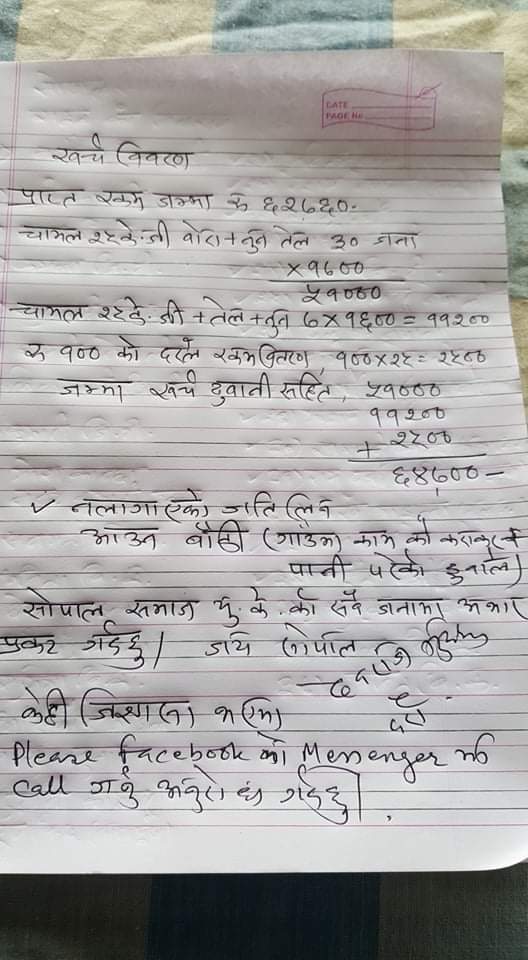 DATE
PAGE No
खर्च विवरण
प्राप्त रकम जम्मा रु ६२७६०-
चामल २५के.जी बोरा+नुन तेल ३० जना
×१७००
५१०००
चामल २५के.जी+तेल+नुन ७×१६००=११२००
रु १०० को दरले रकम वितरण, १००×२५=२५००
जम्मा खर्च ढुवानी सहित, ५१०००
११२००
+ २५००
६४७००-
✓ नलागाएको जति लिन
आउन बाँकी (गाउँमा काम को
पानी परेको हुनाले)
सोपाल समाज यु.के.को सबै जनामा आभार
प्रकट गर्दछु। जय गोपाल
केही जिज्ञासा भएमा
Please facebook को Menenger मा
call गर्नु अनुरोध गर्दछु।